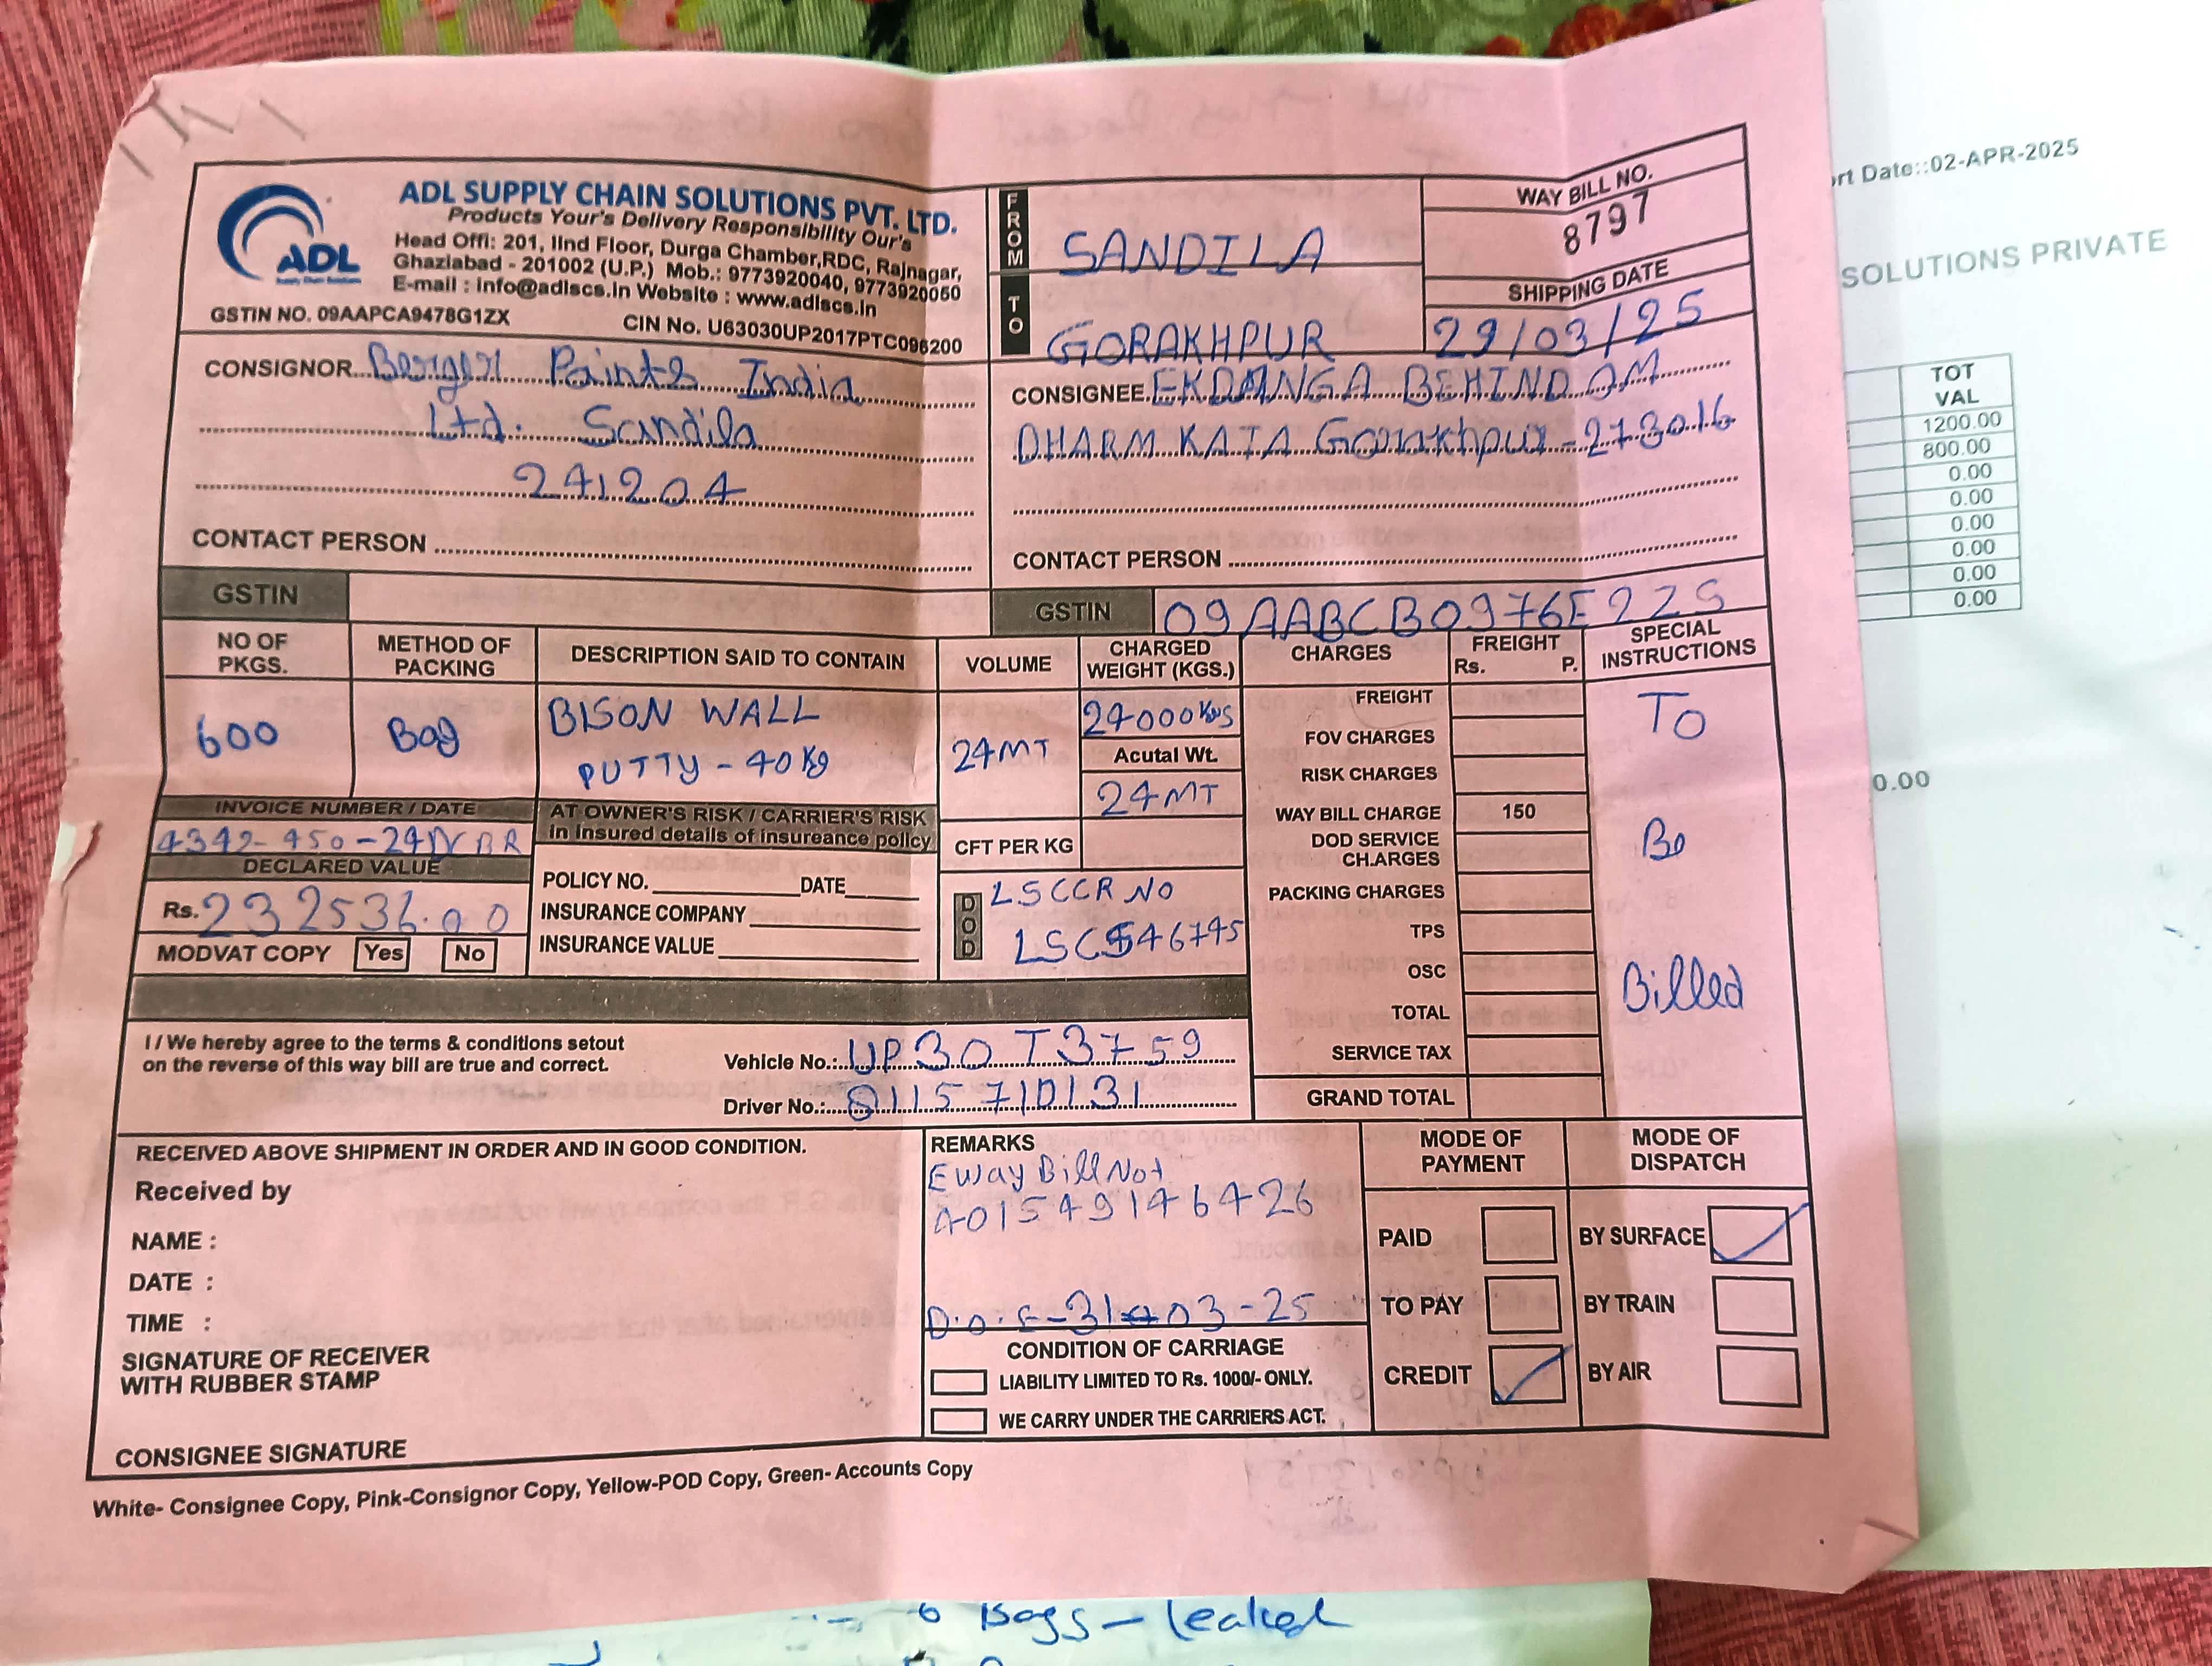 ADL SUPPLY CHAIN SOLUTIONS PVT. LTD.
Products Your's Delivery Responsibility Our's
Head Offi: 201, IInd Floor, Durga Chamber,RDC, Rajnagar,
Ghaziabad - 201002 (U.P.) Mob.: 9773920040, 9773920050
E-mail : info@adlscs.in Website : www.adlscs.in
GSTIN NO. 09AAPCA9478G1ZX
CIN No. U63030UP2017PTC096200
ADL
Supply Chain Solutions
FROM
SANDILA
TO
GORAKHPUR
WAY BILL NO.
8797
SHIPPING DATE
29/03/25
CONSIGNOR Berger Paints India
Ltd. Sandila
241204
CONTACT PERSON
CONSIGNEE EKDANGA BEHIND OM
DHARM KATA Gorakhpur - 273016
CONTACT PERSON
GSTIN
GSTIN 09AABCB0976E2ZS
NO OF PKGS.
METHOD OF PACKING
DESCRIPTION SAID TO CONTAIN
VOLUME
CHARGED WEIGHT (KGS.)
CHARGES
FREIGHT
Rs. P.
SPECIAL INSTRUCTIONS
600
Bag
BISON WALL
PUTTY - 40 Kg
24MT
24000 Kgs
Acutal Wt.
24MT
CFT PER KG
INVOICE NUMBER / DATE
DECLARED VALUE
Rs. 232536.00
MODVAT COPY Yes No
AT OWNER'S RISK / CARRIER'S RISK
in insured details of insureance policy
POLICY NO. DATE
INSURANCE COMPANY
INSURANCE VALUE
DOD
LSCCR NO
FREIGHT
FOV CHARGES
RISK CHARGES
WAY BILL CHARGE 150
DOD SERVICE CH.ARGES
PACKING CHARGES
TPS
OSC
TOTAL
SERVICE TAX
GRAND TOTAL
To
Be
Billed
I / We hereby agree to the terms & conditions setout
on the reverse of this way bill are true and correct.
Vehicle No.: UP30 T3759
Driver No.: 8115710131
RECEIVED ABOVE SHIPMENT IN ORDER AND IN GOOD CONDITION.
Received by
NAME :
DATE :
TIME :
SIGNATURE OF RECEIVER
WITH RUBBER STAMP
CONSIGNEE SIGNATURE
REMARKS
Eway Bill No+
401549146426
D.O.E-31-03-25
CONDITION OF CARRIAGE
LIABILITY LIMITED TO Rs. 1000/- ONLY.
WE CARRY UNDER THE CARRIERS ACT.
MODE OF PAYMENT
PAID
TO PAY
CREDIT
MODE OF DISPATCH
BY SURFACE
BY TRAIN
BY AIR
White- Consignee Copy, Pink-Consignor Copy, Yellow-POD Copy, Green- Accounts Copy
Date::02-APR-2025
SOLUTIONS PRIVATE
TOT
VAL
1200.00
800.00
0.00
0.00
0.00
0.00
0.00
0.00
0.00
6 Bags - leaked